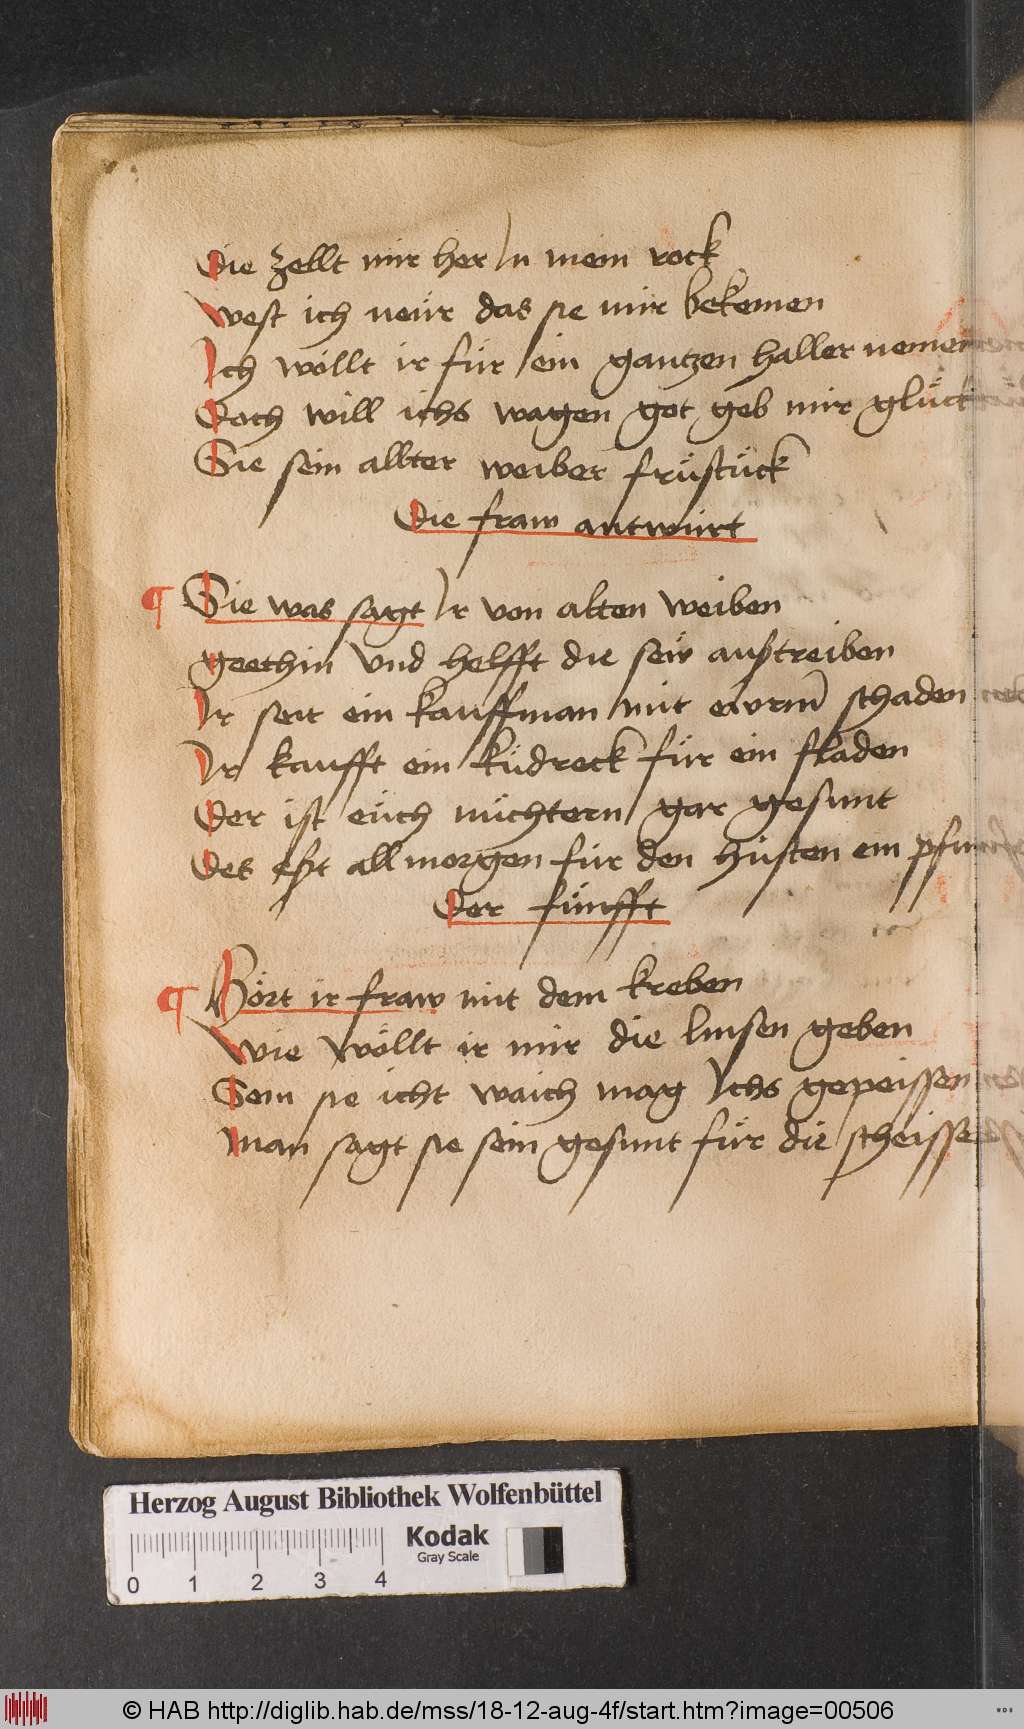 Die zellt mir her In mein rock
West ich neür das sie mir bekemen
Ich wöllt ir für ein gantzen haller nemen
Doch will ichs wagen got geb mir glück
Sie sein allter weiber früstück
Die fraw antwürt
¶ Sie was sagt Ir von alten weiben
geethin Und helfft die sew außtreiben
Ir seit ein kauffman mit ewrm schaden
Ir kaufft ein küdreck für ein fladen
Der ist eüch nüchtern gar gesunt
Des eßt all morgen für den hüsten ein
Der fünfft
¶ Hört ir fraw mit dem kreben
Wie wöllt ir mir die linsen geben
Sein sie icht waich mag Ichs gepeissen
man sagt sie sein gesunt für die
Herzog August Bibliothek Wolfenbüttel
Kodak
Gray Scale
0 1 2 3 4
© HAB http://diglib.hab.de/mss/18-12-aug-4f/start.htm?image=00506